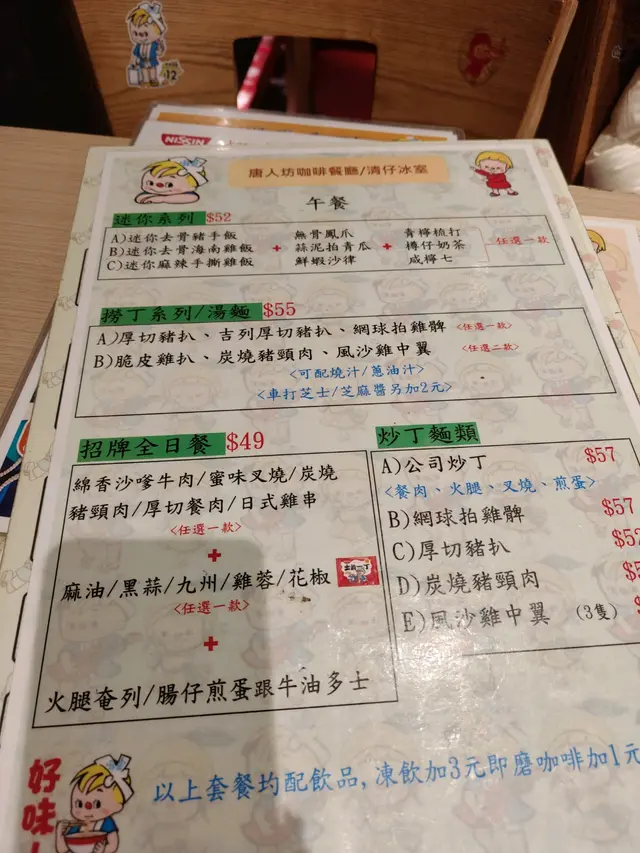 NISSIN
唐人坊咖啡餐廳/清仔冰室
午餐
迷你系列 $52
A)迷你去骨豬手飯
B)迷你去骨海南雞飯
C)迷你麻辣手撕雞飯
+
無骨鳳爪
蒜泥拍青瓜
鮮蝦沙律
+
青檸梳打
樽仔奶茶
咸檸七
任選一款
撈丁系列/湯麵 $55
A)厚切豬扒、吉列厚切豬扒、網球拍雞髀 <任選一款>
B)脆皮雞扒、炭燒豬頸肉、風沙雞中翼 <任選二款>
<可配燒汁/蔥油汁>
<車打芝士/芝麻醬另加2元>
招牌全日餐 $49
綿香沙嗲牛肉/蜜味叉燒/炭燒
豬頸肉/厚切餐肉/日式雞串
<任選一款>
+
麻油/黑蒜/九州/雞蓉/花椒
<任選一款>
+
火腿奄列/腸仔煎蛋跟牛油多士
炒丁麵類
A)公司炒丁 $57
<餐肉、火腿、叉燒、煎蛋>
B)網球拍雞髀 $57
C)厚切豬扒
D)炭燒豬頸肉
E)風沙雞中翼 (3隻)
好味
以上套餐均配飲品,凍飲加3元即磨咖啡加1元